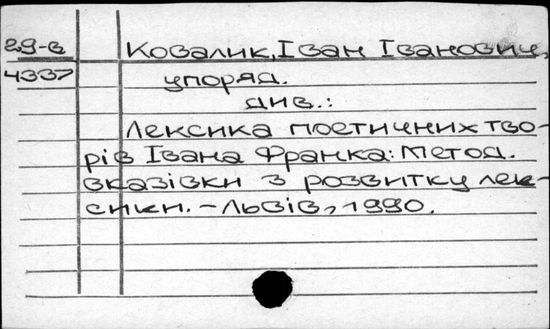 29-в Ковалик, Іван Іванович,
4337 упоряд.
див.:
Лексика поетичних тво-
рів Івана Франка: Метод.
вказівки з розвитку лек-
сики. – Львів, 1990.